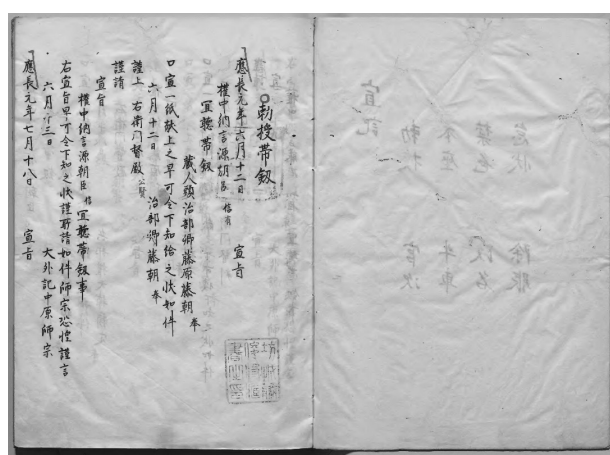 除服
禁色 改名
本座 牛車
官次
宣記
勅授帯釼
應長元年六月十二日 宣旨
權中納言源朝臣信有
宜聽帯釼
蔵人頭治部卿藤原藤朝 奉
口宣一紙献上之早可令下知給之状如件
六月十二日 治部卿藤朝 奉
謹上 右衛門督殿 公賢
謹請
宣旨
權中納言源朝臣 信 宜聽帯釼事
右宣旨早可令下知之状謹所請如件師宗恐惶謹言
六月十三日 大外記中原師宗
應長元年七月十八日 宣旨